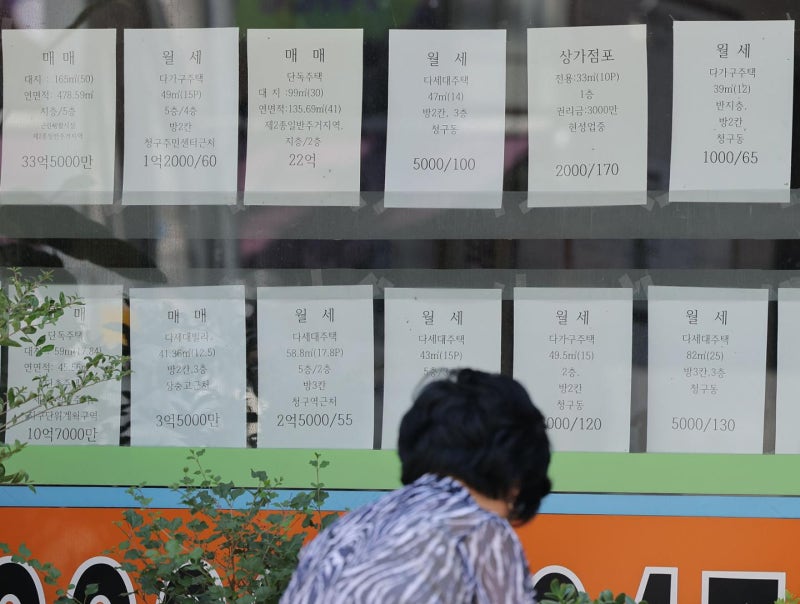 매 매
대지 : 165㎡(50)
연면적: 478.59㎡
지층/5층
근린생활시설
제2종일반주거지역
33억5000만
월 세
다가구주택
49㎡(15P)
5층/4층
방2칸
청구주민센터근처
1억2000/60
매 매
단독주택
대 지 :99㎡(30)
연면적:135.69㎡(41)
제2종일반주거지역.
지층/2층
22억
월 세
다세대주택
47㎡(14)
방2칸, 3층
청구동
5000/100
상가점포
전용:33㎡(10P)
1층
권리금:3000만
현성업중
2000/170
월 세
다가구주택
39㎡(12)
반지층.
방2칸
청구동
1000/65
매
단독주택
59㎡(17.84)
연면적:
10억7000만
매 매
다세대빌라
41.36㎡(12.5)
방2칸.3층
장충고근처
3억5000만
월 세
다세대주택
58.8㎡(17.8P)
5층/2층
방3칸
청구역근처
2억5000/55
월 세
다세대주택
43㎡(15P)
월 세
다가구주택
49.5㎡(15)
2층.
방2칸
청구동
000/120
월 세
다세대주택
82㎡(25)
방3칸.3층
청구동
5000/130